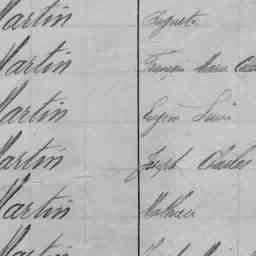 Martin Auguste
Martin François Marie
Martin Eugène Louis
Martin Joseph Charles
Martin Mathieu
Martin